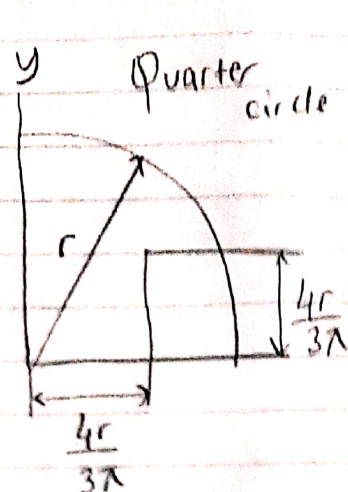 y
Quarter
circle
r
4r
3π
4r
3π